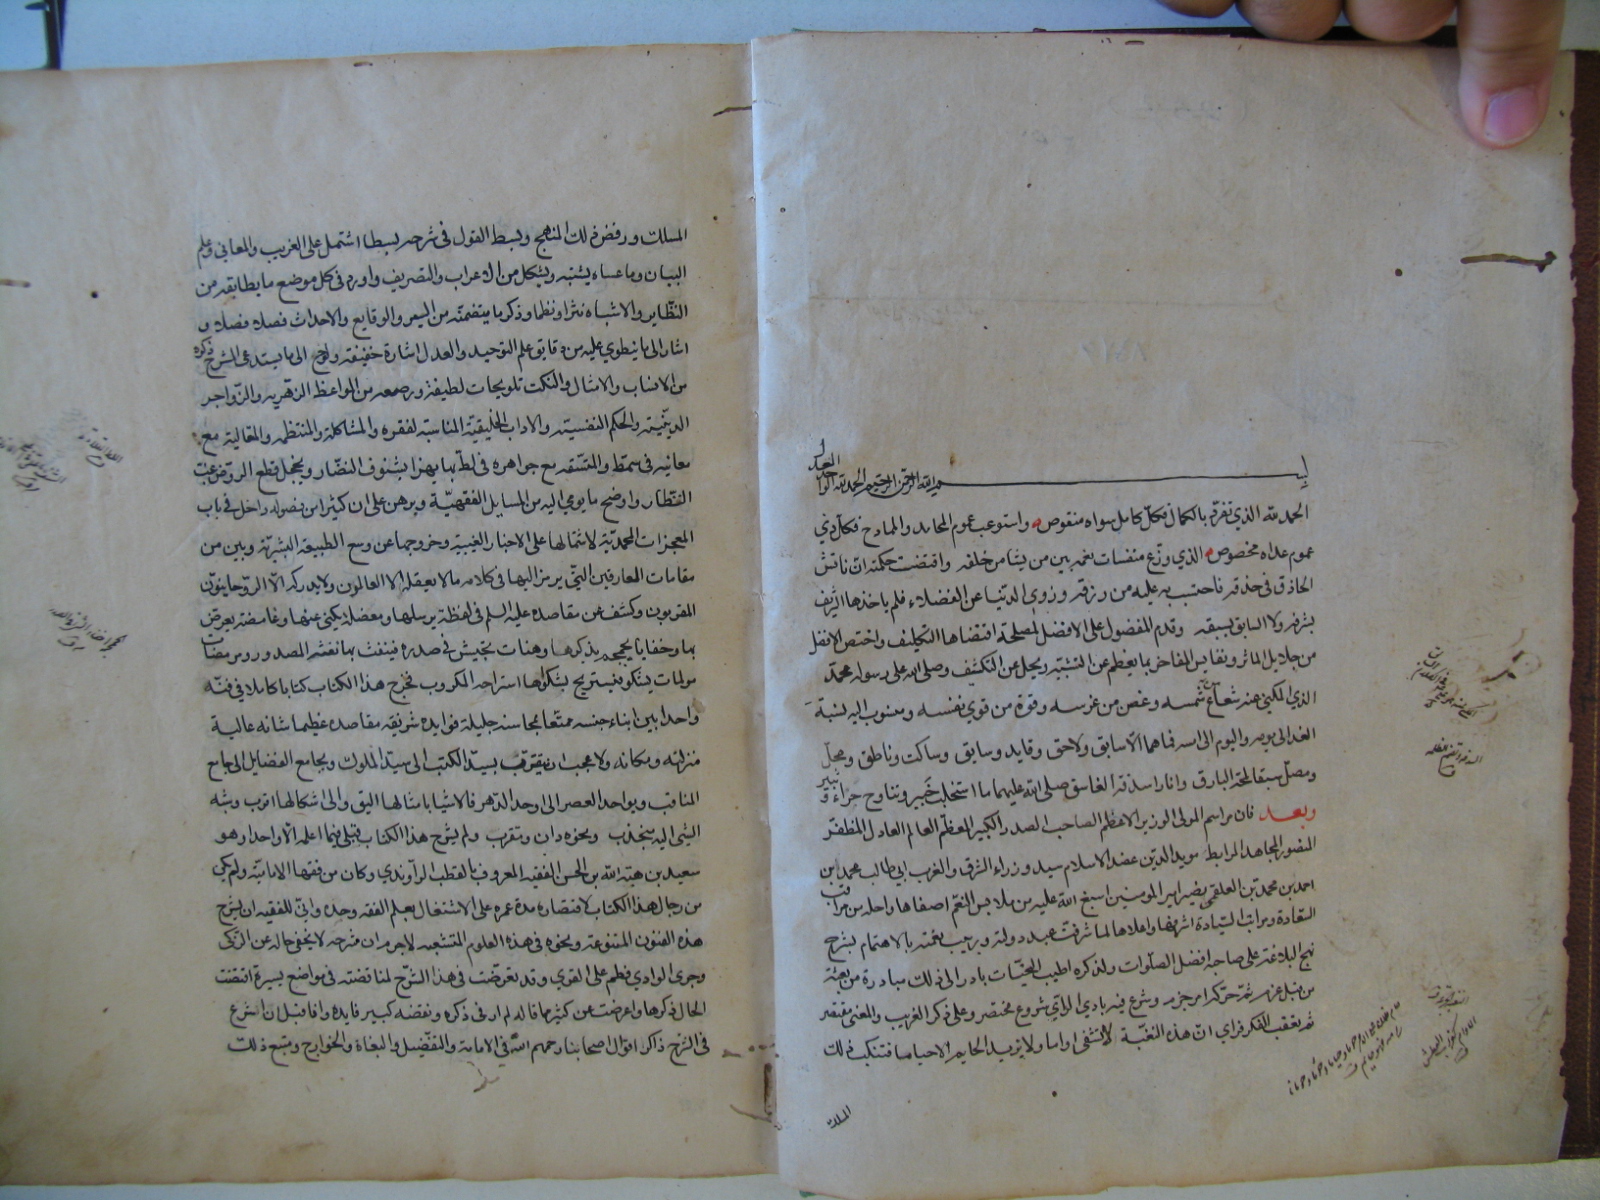 بسم الله الرحمن الرحيم الحمد لله الواحد العدل
الحمد لله الذي تفرد بالكمال فكل كامل سواه منقوص واستوعب عموم المحامد والممادح فكل ذي
عموم عداه مخصوص الذي وزع منفسات نعمه بين من يشاء من خلقه واقتضت حكمته ان نافس
الحاذق في حذقه فاحتسب به عليه من رزقه وزوي الدنيا عن الفضلاء فلم ياخذها الشريف
بشرفه ولا السابق بسبقه وقدم المفضول على الافضل لمصلحة اقتضاها التكليف واختص الافضل
من جلايل الماثر ونفايس المفاخر بما يعظم عن التشبيه ويجل عن التكييف وصلى الله على رسوله محمد
الذي المكنى عنه شعاع من شمسه وغصن من غرسه وقوة من قوى نفسه ومنسوب اليه نسبة
الغد الى يومه واليوم الى امسه فما هما الا سابق ولاحق وقايد وسايق وساكت وناطق ومجل
ومصل سبقا لمحة البارق وانارا سدفة الغاسق صلى الله عليهما ما استخلب خبير وتناوح حراء وثبير
وبعد فان مراسم المولى الوزير الاعظم الصاحب الصدر الكبير المعظم العالم العادل المظفر
المنصور المجاهد المرابط مويد الدين عضد الاسلام سيد وزراء الشرق والغرب ابي طالب محمد بن
احمد بن محمد بن العلقمي نصير امير المومنين اسبغ الله عليه من ملابس النعم اضفاها واحله من مراقب
السعادة ومراتب السيادة اشرفها واعلاها لما شرفت عبد دولته وربيب نعمته بالاهتمام بشرح
نهج البلاغة على صاحبه افضل الصلوات ولذكره اطيب التحيات بادر الى ذلك مبادرة من بعثه
من قبل عزم ثم حركه امر جزم وشرع فيه بادي الراي شروع مختصر وعلى ذكر الغريب والمعنى مقتصر
ثم تعقب الفكر فراى ان هذه النغبة لا تشفي اواما ولا يزيد الحايم الا حياما فتنكب ذلك
المسلك
المسلك ورفض ذلك المنهج وبسط القول في شرحه بسطا اشتمل على الغريب والمعاني وعلم
البيان وما عساه يشتبه ويشكل من الاعراب والتصريف واورد في كل موضع ما يطابقه من
النظاير والاشباه نثرا ونظما وذكر ما يتضمنه من السير والوقايع والاحداث فصلا فصلا و
اشار الى ما ينطوي عليه من دقايق علم التوحيد والعدل اشارة خفيفة ولوح الى ما يستدعي الشرح ذكره
من الانساب والامثال والنكت تلويحات لطيفة ورصعه من المواعظ الزهدية والزواجر
الدينية والحكم النفسية والاداب الخلقية المناسبة لفقره والمشاكلة والمنتظمة مع
معانيه في سمط والمتسقة مع جواهره في لط بما يهزا بشنوف النضار ويخجل قطع الروض غب
القطار واوضح ما يومي اليه من المسايل الفقهية وبرهن على ان كثيرا من فصوله داخل في باب
المعجزات المحمدية لاشتمالها على الاخبار الغيبية وخروجها عن وسع الطبيعة البشرية وبين من
مقامات العارفين التي يرمز اليها في كلامه ما لا يعقله الا العالمون ولا يدركه الا الروحانيون
المقربون وكشف عن مقاصده عليه السلم في لفظة يرسلها ومعضلة يكني عنها وغامضة يعرض
بها وخفايا يجمجم بذكرها وهنات تجيش في صدره فينفث بها نفثة المصدور ومرمضات
مولمات يشكو فيستريح بشكواها استراحة المكروب فخرج هذا الكتاب كتابا كاملا في فنه
واحدا بين ابناء جنسه ممتعا بمحاسنه جليلة فوايده شريفة مقاصده عظيما شانه عالية
منزلته ومكانه ولا عجب ان يتقرب بسيد الكتب الى سيد الملوك وبجامع الفضايل الى جامع
المناقب وبواحد العصر الى اوحد الدهر فالاشيا بامثالها اليق والى اشكالها اقرب وشبه
الشي اليه منجذب ونحوه دان ومقترب ولم يشرح هذا الكتاب قبلي فيما اعلمه الا واحد وهو
سعيد بن هبة الله بن الحسن الفقيه المعروف بالقطب الراوندي وكان من فقها الامامية ولم يكن
من رجال هذا الكتاب لاقتصاره مدة عمره على الاشتغال بعلم الفقه وحده وانى للفقيه ان يشرح
هذه الفنون المتنوعة ويخوض في هذه العلوم المتشعبة لا جرم ان شرحه لا يخفى حاله عن الذكي
وجرى الوادي فطم على القرى وقد تعرضت في هذا الشرح لمناقضته في مواضع يسيرة اقتضت
الحال ذكرها واعرضت عن كثير مما قاله لم ار في ذكره ونقضه كبير فايدة وانا قبل ان اشرع
في الشرح ذاكر اقوال اصحابنا رحمهم الله في الامامة والتفضيل والبغاة والخوارج ومتبع ذلك